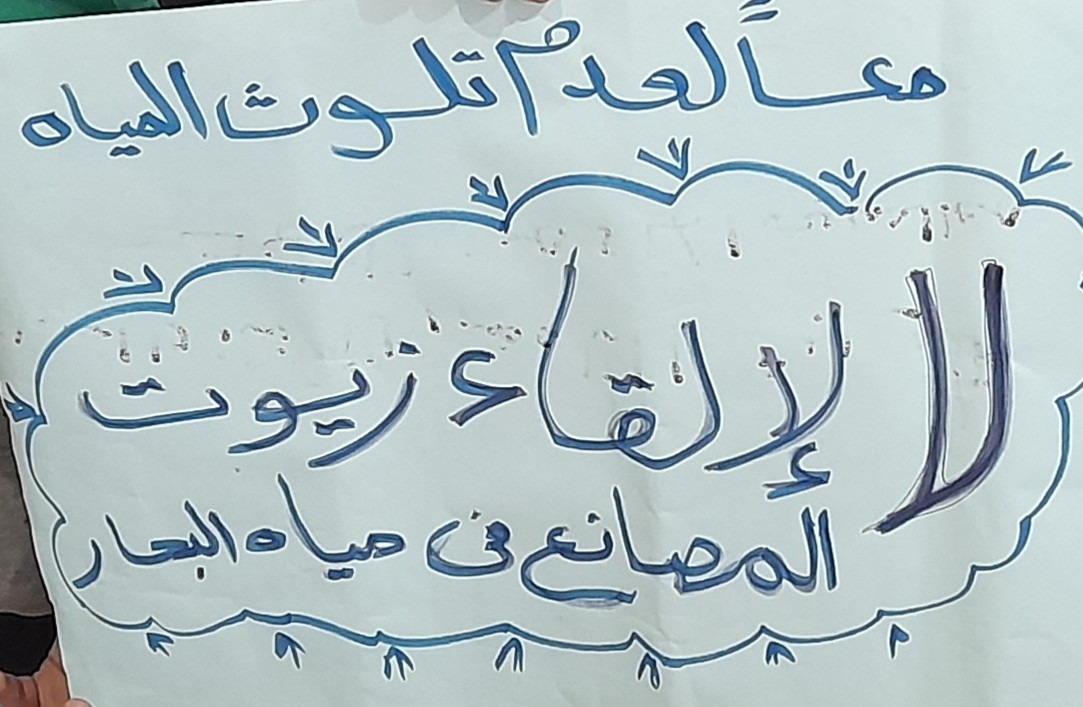 معاً لعدم تلوث المياه
لا لإلقاء زيوت
المصانع فى مياه البحار